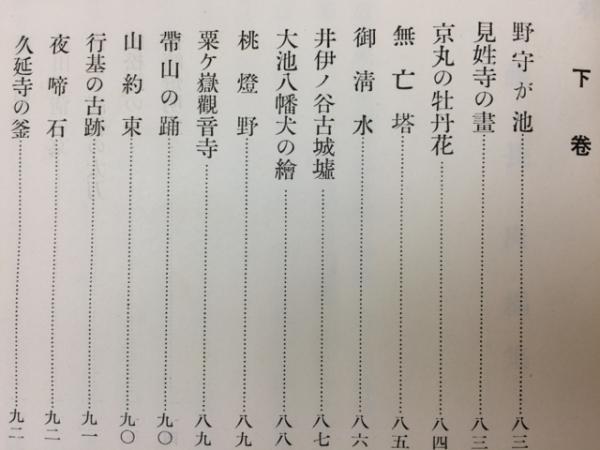 下卷
野守が池……八三
見姓寺の畫……八三
京丸の牡丹花……八四
無亡塔……八五
御淸水……八六
井伊ノ谷古城墟……八七
大池八幡犬の繪……八八
桃燈野……八九
粟ヶ嶽觀音寺……八九
帶山の踊……九〇
山約束……九〇
行基の古跡……九一
夜啼石……九二
久延寺の釜……九二